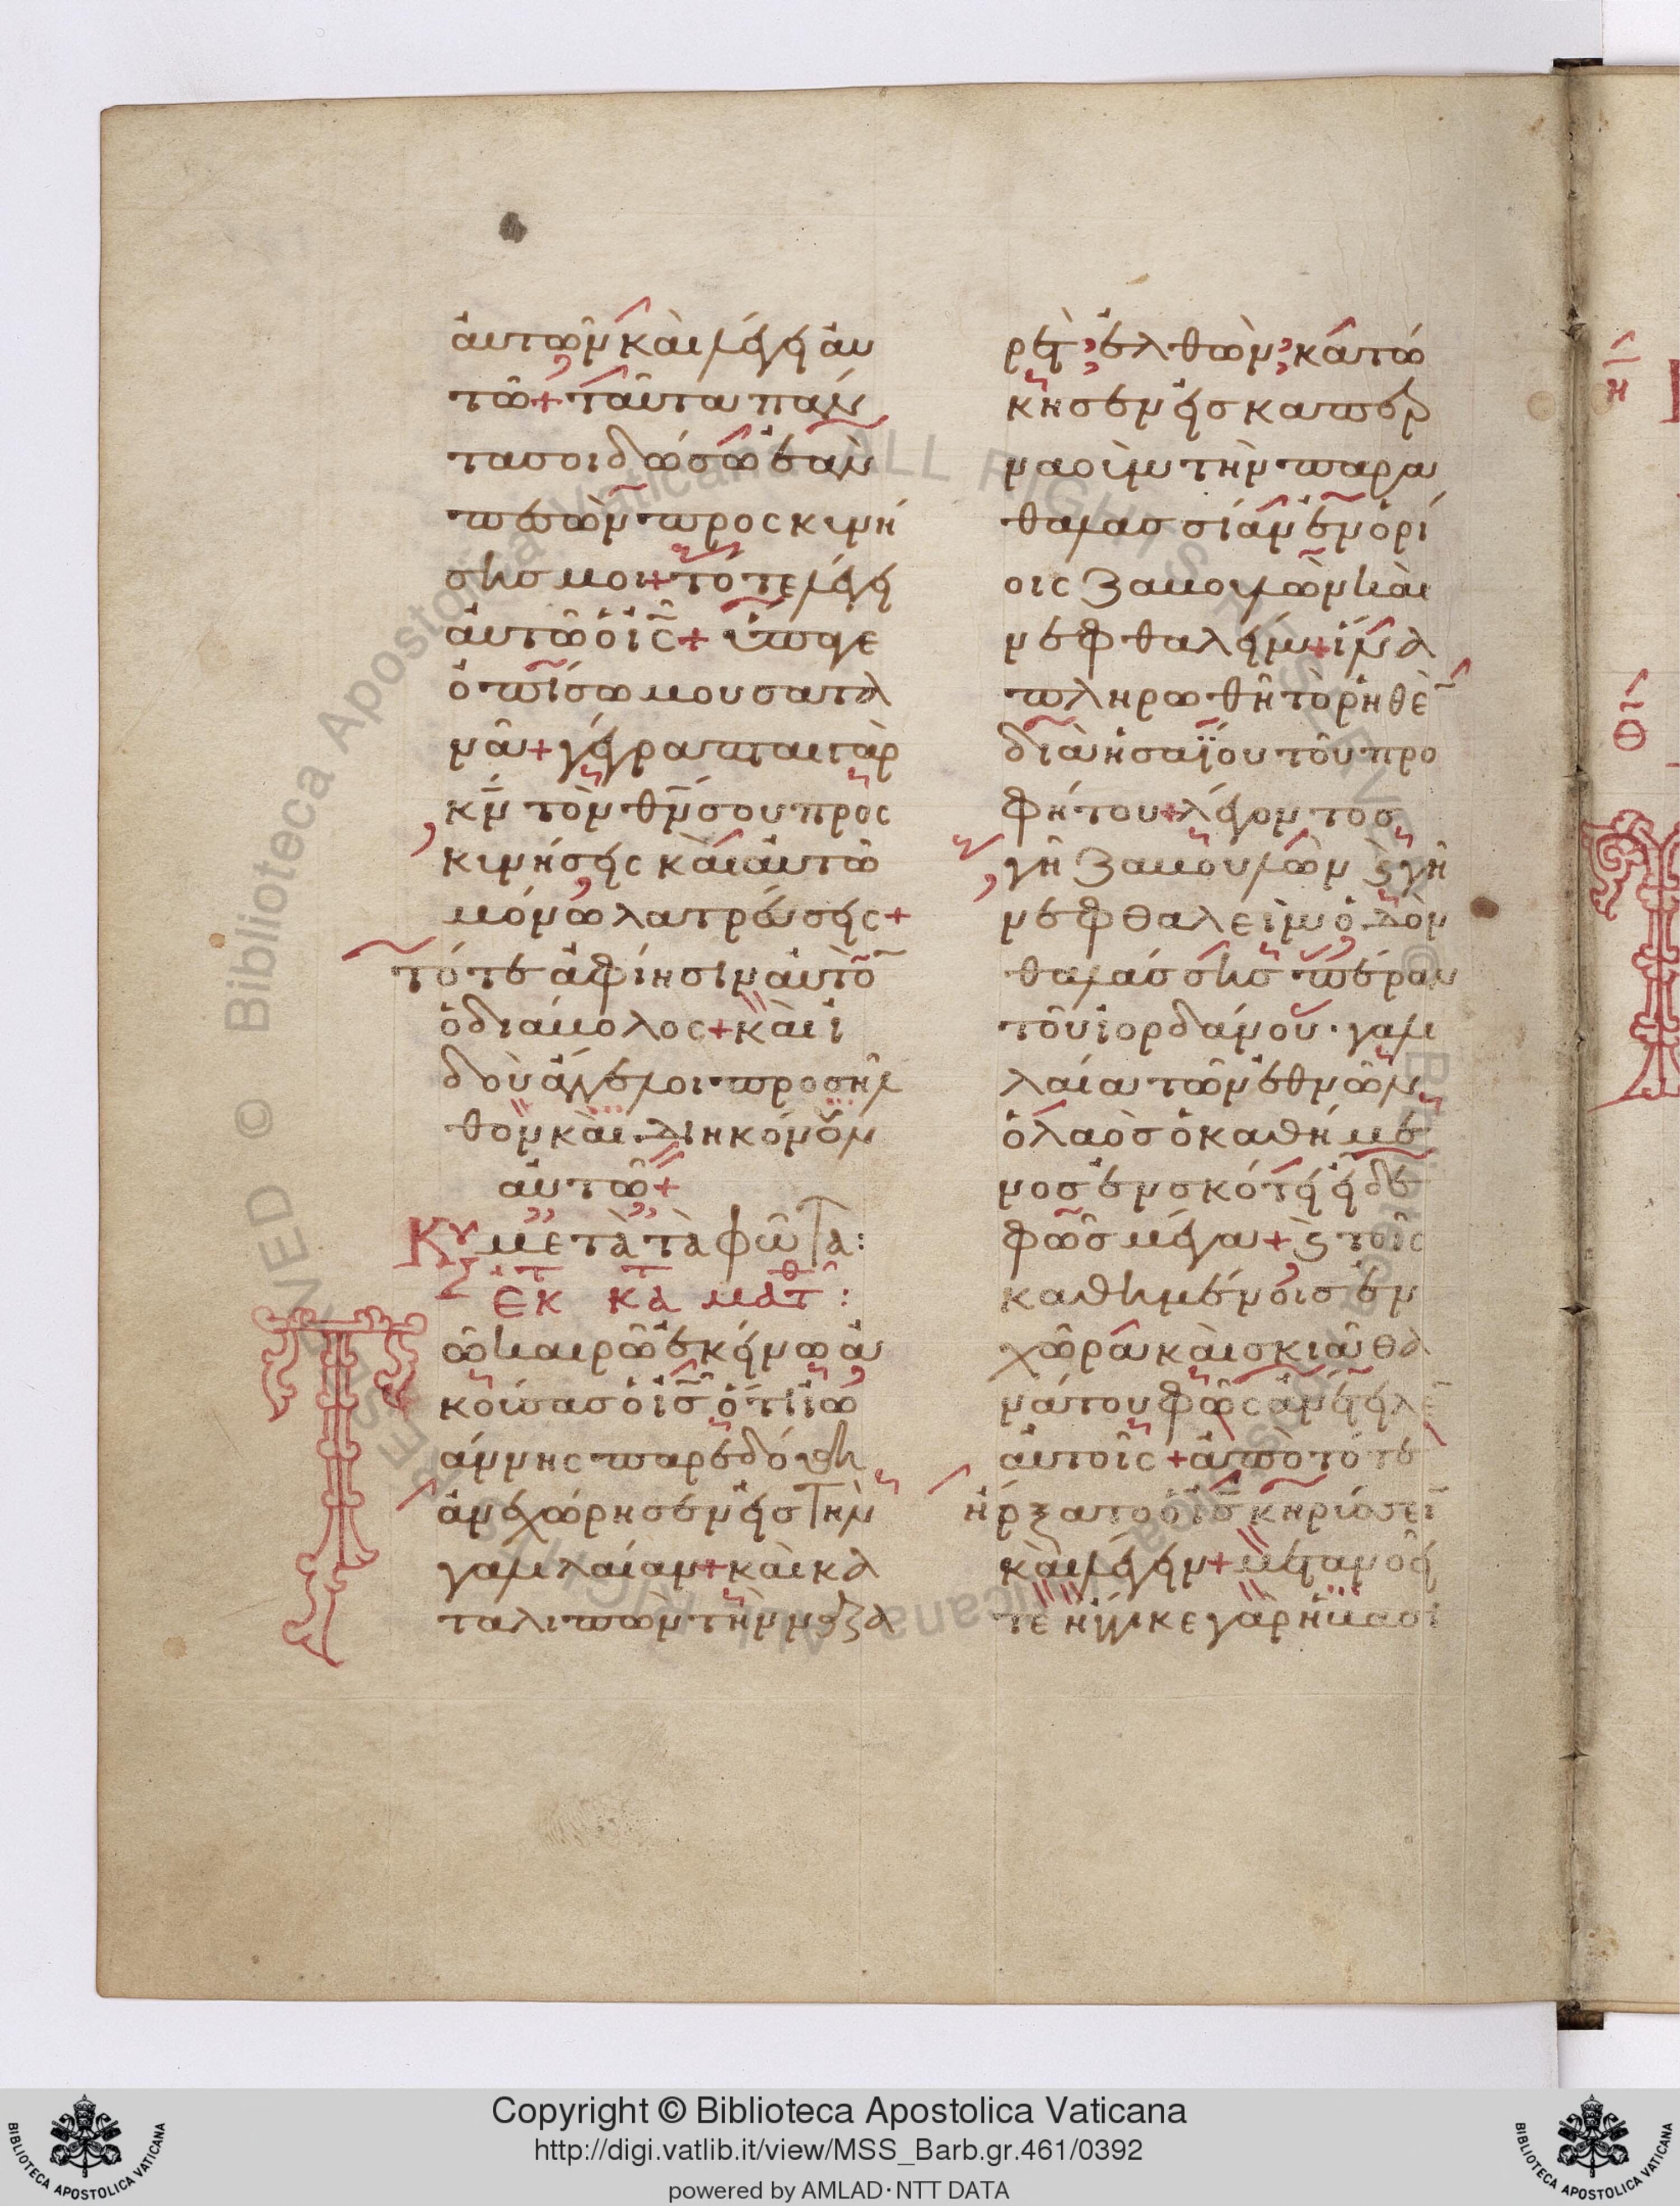 ἀυτῶν καὶ λέγει ἀυ
τῶ+ ταῦτα πάν
τα σοι δώσω ἐὰν
πεσὼν προσκυνή
σης μοι+ τότε λέγει
ἀυτῶ ὁ ις+ ὕπαγε
ὀπίσω μου σατα
νᾶ+ γέγραπται γὰρ
κν τὸν θν σου προς
κυνήσεις καὶ ἀυτῶ
μόνω λατρεύσεις+
τότε ἀφίησιν ἀυτὸ
ὁ διάβολος+ καὶ ἰ
δοὺ ἄγγελοι προσῆλ
θον καὶ διηκόνουν
ἀυτῶ+
Κυ μετὰ τὰ φῶτα:
ἐκ τ κατ ματθ:
Τῶ καιρῶ ἐκείνω ἀ
κούσας ὁ ις ὅτι ἰω
άννης παρεδόθη
ἀνεχώρησεν εἰς τὴν
γαλιλαίαν+ καὶ κα
ταλιπὼν τὴν ναζα
ρὲτ ἐλθὼν κατώ
κησεν εἰς καπερ
ναοὺμ τὴν παρα
θαλασσίαν ἐν ὁρί
οις ζαβουλὼν καὶ
νεφθαλείμ+ ἵνα
πληρωθῆ τὸ ρηθὲ
διὰ ἡσαΐου τοῦ προ
φήτου+ λέγοντος
γῆ ζαβουλὼν ϗ γῆ
νεφθαλεὶμ ὁδὸν
θαλάσσης πέραν
τοῦ ἰορδάνου· γαλι
λαία τῶν ἐθνῶν
ὁ λαὸς ὁ καθήμε
νος ἐν σκότει εἶδε
φῶς μέγα+ ϗ τοῖς
καθημένοις ἐν
χώρα καὶ σκιᾶ θα
νάτου φῶς ἀνέτειλε
ἀυτοῖς+ ἀπὸ τότε
ἤρξατο ὁ ις κηρύσσει
καὶ λέγειν+ μετανοεῖ
τε ἤγγικε γὰρ ἡ βασι
Copyright © Biblioteca Apostolica Vaticana
http://digi.vatlib.it/view/MSS_Barb.gr.461/0392
powered by AMLAD·NTT DATA